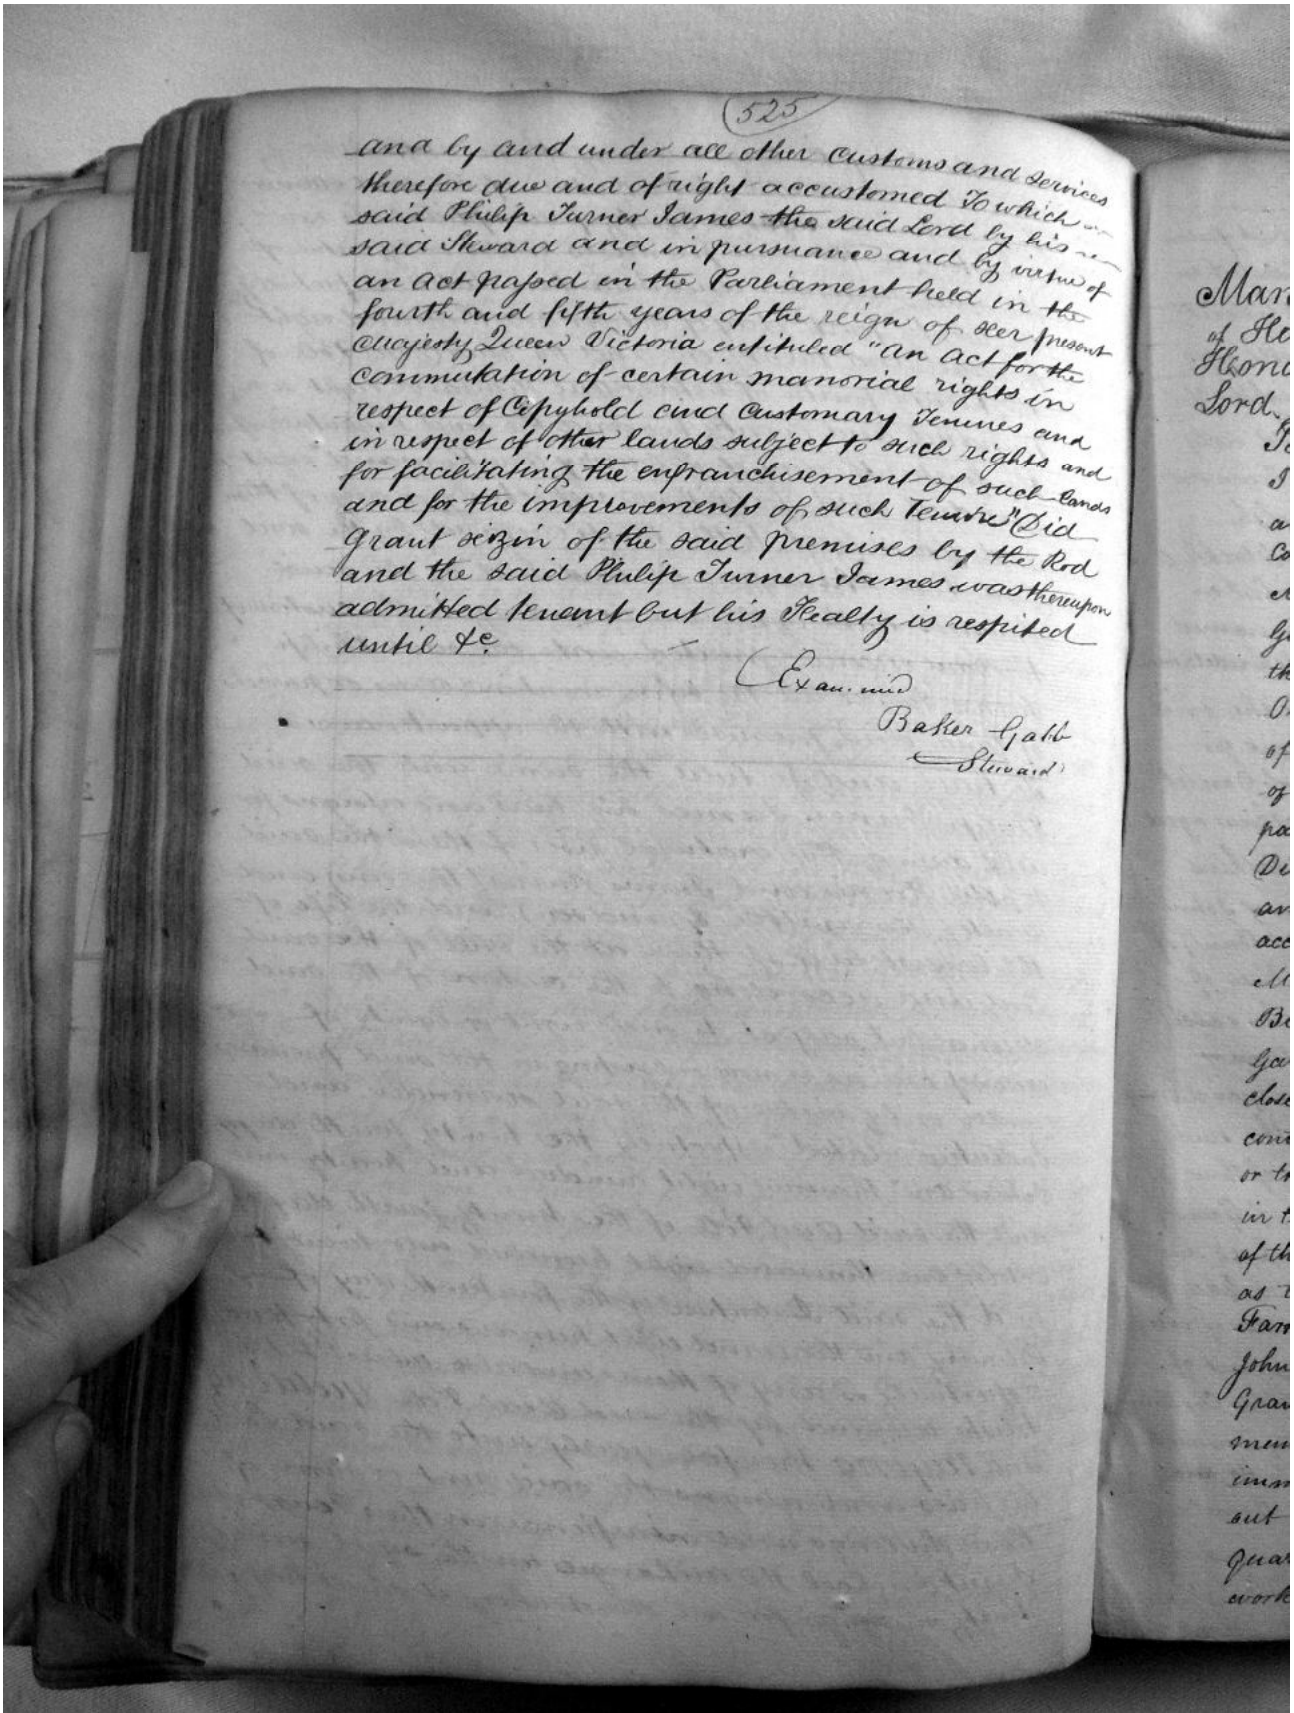 525
and by and under all other customs and services
therefore due and of right accustomed To which
said Philip Turner James the said Lord by his
said Steward and in pursuance and by virtue of
an Act passed in the Parliament held in the
fourth and fifth years of the reign of Her present
Majesty Queen Victoria entituled "An Act for the
commutation of certain manorial rights in
respect of Copyhold and Customary Tenures and
in respect of other lands subject to such rights and
for facilitating the enfranchisement of such lands
and for the improvements of such Tenure" Did
Grant seizin of the said premises by the Rod
and the said Philip Turner James was thereupon
admitted tenant but his Fealty is respited
until &c.
Examined
Baker Gabb
Steward
Man
of He
Hono
Lord.
To
I
a
Co
Ge
th
O
of
of
pa
De
an
acc
M
Be
Ga
close
cont
or tr
in t
of th
as t
Far
John
Gran
mem
imm
out
quar
work